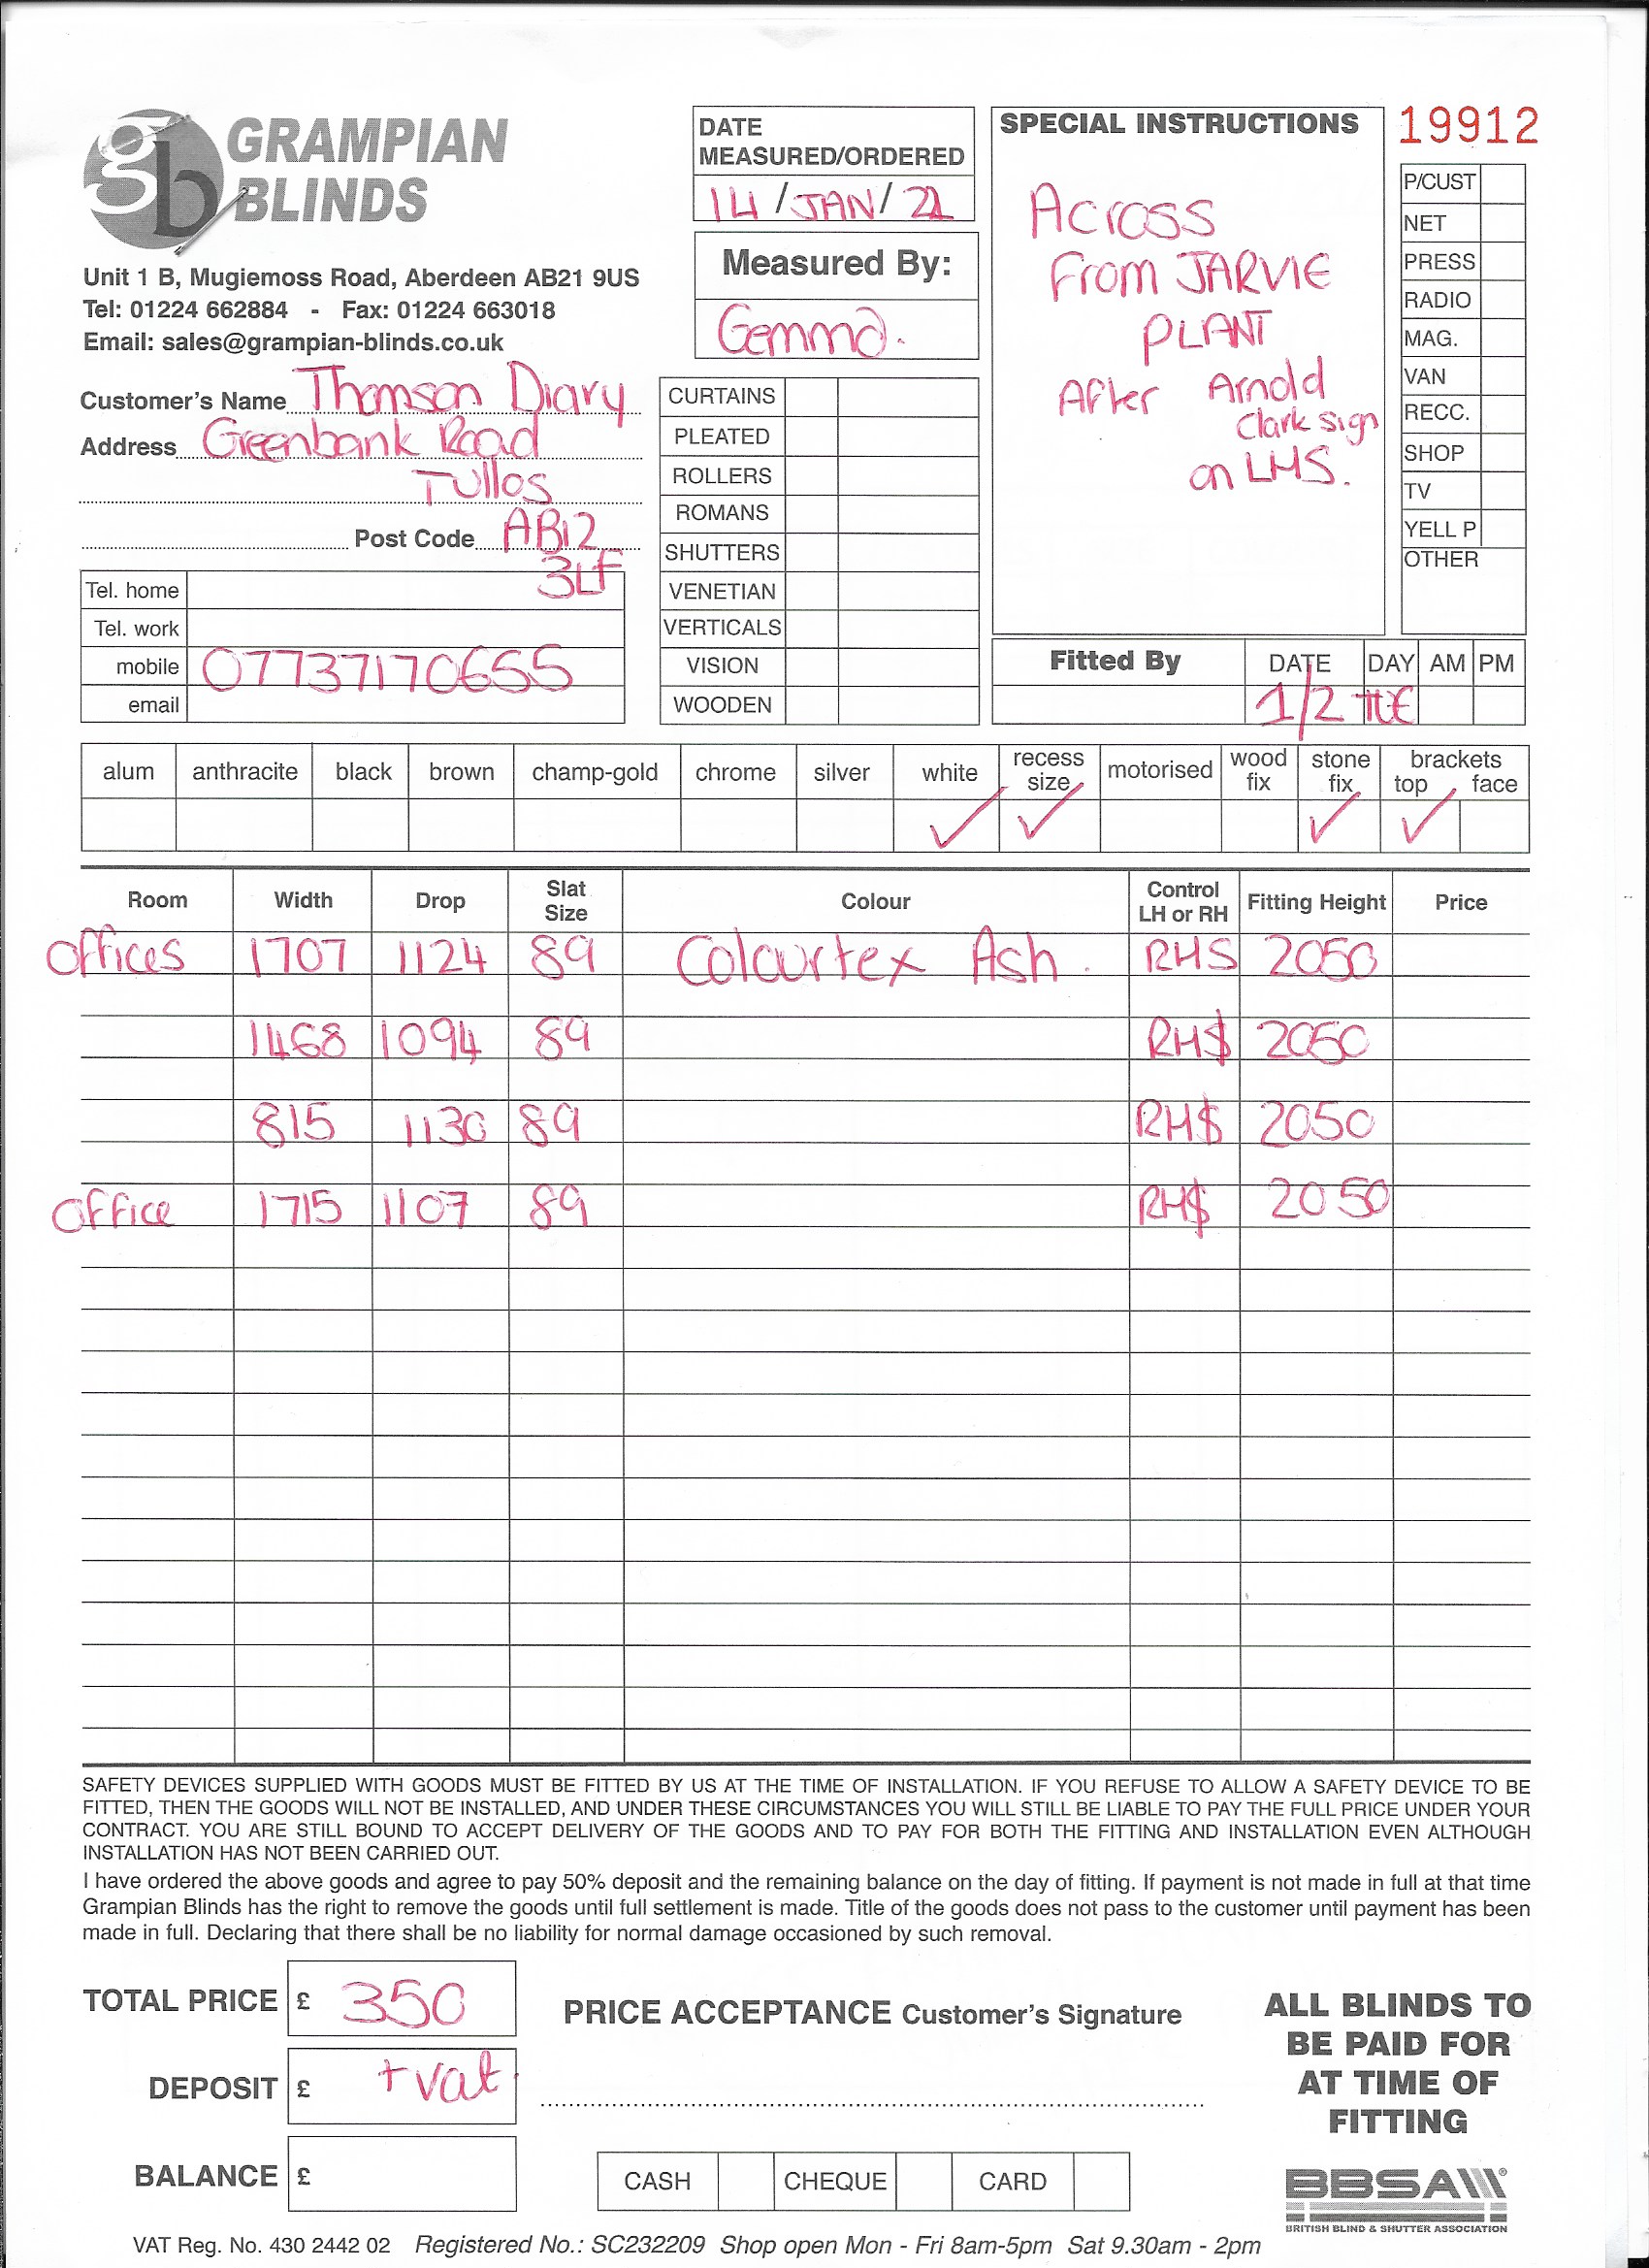 gb GRAMPIAN
BLINDS
Unit 1 B, Mugiemoss Road, Aberdeen AB21 9US
Tel: 01224 662884 - Fax: 01224 663018
Email: sales@grampian-blinds.co.uk
Customer's Name Thomson Diary
Address Greenbank Road
Tullos
Post Code AB12
3LF
Tel. home
Tel. work
mobile 07737170655
email
DATE
MEASURED/ORDERED
14/JAN/22
Measured By:
Gemma.
CURTAINS
PLEATED
ROLLERS
ROMANS
SHUTTERS
VENETIAN
VERTICALS
VISION
WOODEN
SPECIAL INSTRUCTIONS
Across
From JARVIE
PLANT
After Arnold
Clark sign
on LHS.
19912
P/CUST
NET
PRESS
RADIO
MAG.
VAN
RECC.
SHOP
TV
YELL P
OTHER
Fitted By DATE DAY AM PM
1/2 TUE
alum anthracite black brown champ-gold chrome silver white recess size motorised wood fix stone fix brackets top face
✓ ✓ ✓ ✓
Room Width Drop Slat Size Colour Control LH or RH Fitting Height Price
Offices 1707 1124 89 Colourtex Ash. RHS 2050
1468 1094 89 RHS 2050
815 1130 89 RHS 2050
Office 1715 1107 89 RHS 2050
SAFETY DEVICES SUPPLIED WITH GOODS MUST BE FITTED BY US AT THE TIME OF INSTALLATION. IF YOU REFUSE TO ALLOW A SAFETY DEVICE TO BE
FITTED, THEN THE GOODS WILL NOT BE INSTALLED, AND UNDER THESE CIRCUMSTANCES YOU WILL STILL BE LIABLE TO PAY THE FULL PRICE UNDER YOUR
CONTRACT. YOU ARE STILL BOUND TO ACCEPT DELIVERY OF THE GOODS AND TO PAY FOR BOTH THE FITTING AND INSTALLATION EVEN ALTHOUGH
INSTALLATION HAS NOT BEEN CARRIED OUT.
I have ordered the above goods and agree to pay 50% deposit and the remaining balance on the day of fitting. If payment is not made in full at that time
Grampian Blinds has the right to remove the goods until full settlement is made. Title of the goods does not pass to the customer until payment has been
made in full. Declaring that there shall be no liability for normal damage occasioned by such removal.
TOTAL PRICE £ 350
DEPOSIT £ + vat
BALANCE £
PRICE ACCEPTANCE Customer's Signature
CASH CHEQUE CARD
ALL BLINDS TO
BE PAID FOR
AT TIME OF
FITTING
BBSA®
BRITISH BLIND & SHUTTER ASSOCIATION
VAT Reg. No. 430 2442 02 Registered No.: SC232209 Shop open Mon - Fri 8am-5pm Sat 9.30am - 2pm